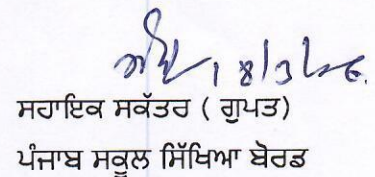 ਸਹਾਇਕ ਸਕੱਤਰ ( ਗੁਪਤ)
ਪੰਜਾਬ ਸਕੂਲ ਸਿੱਖਿਆ ਬੋਰਡ